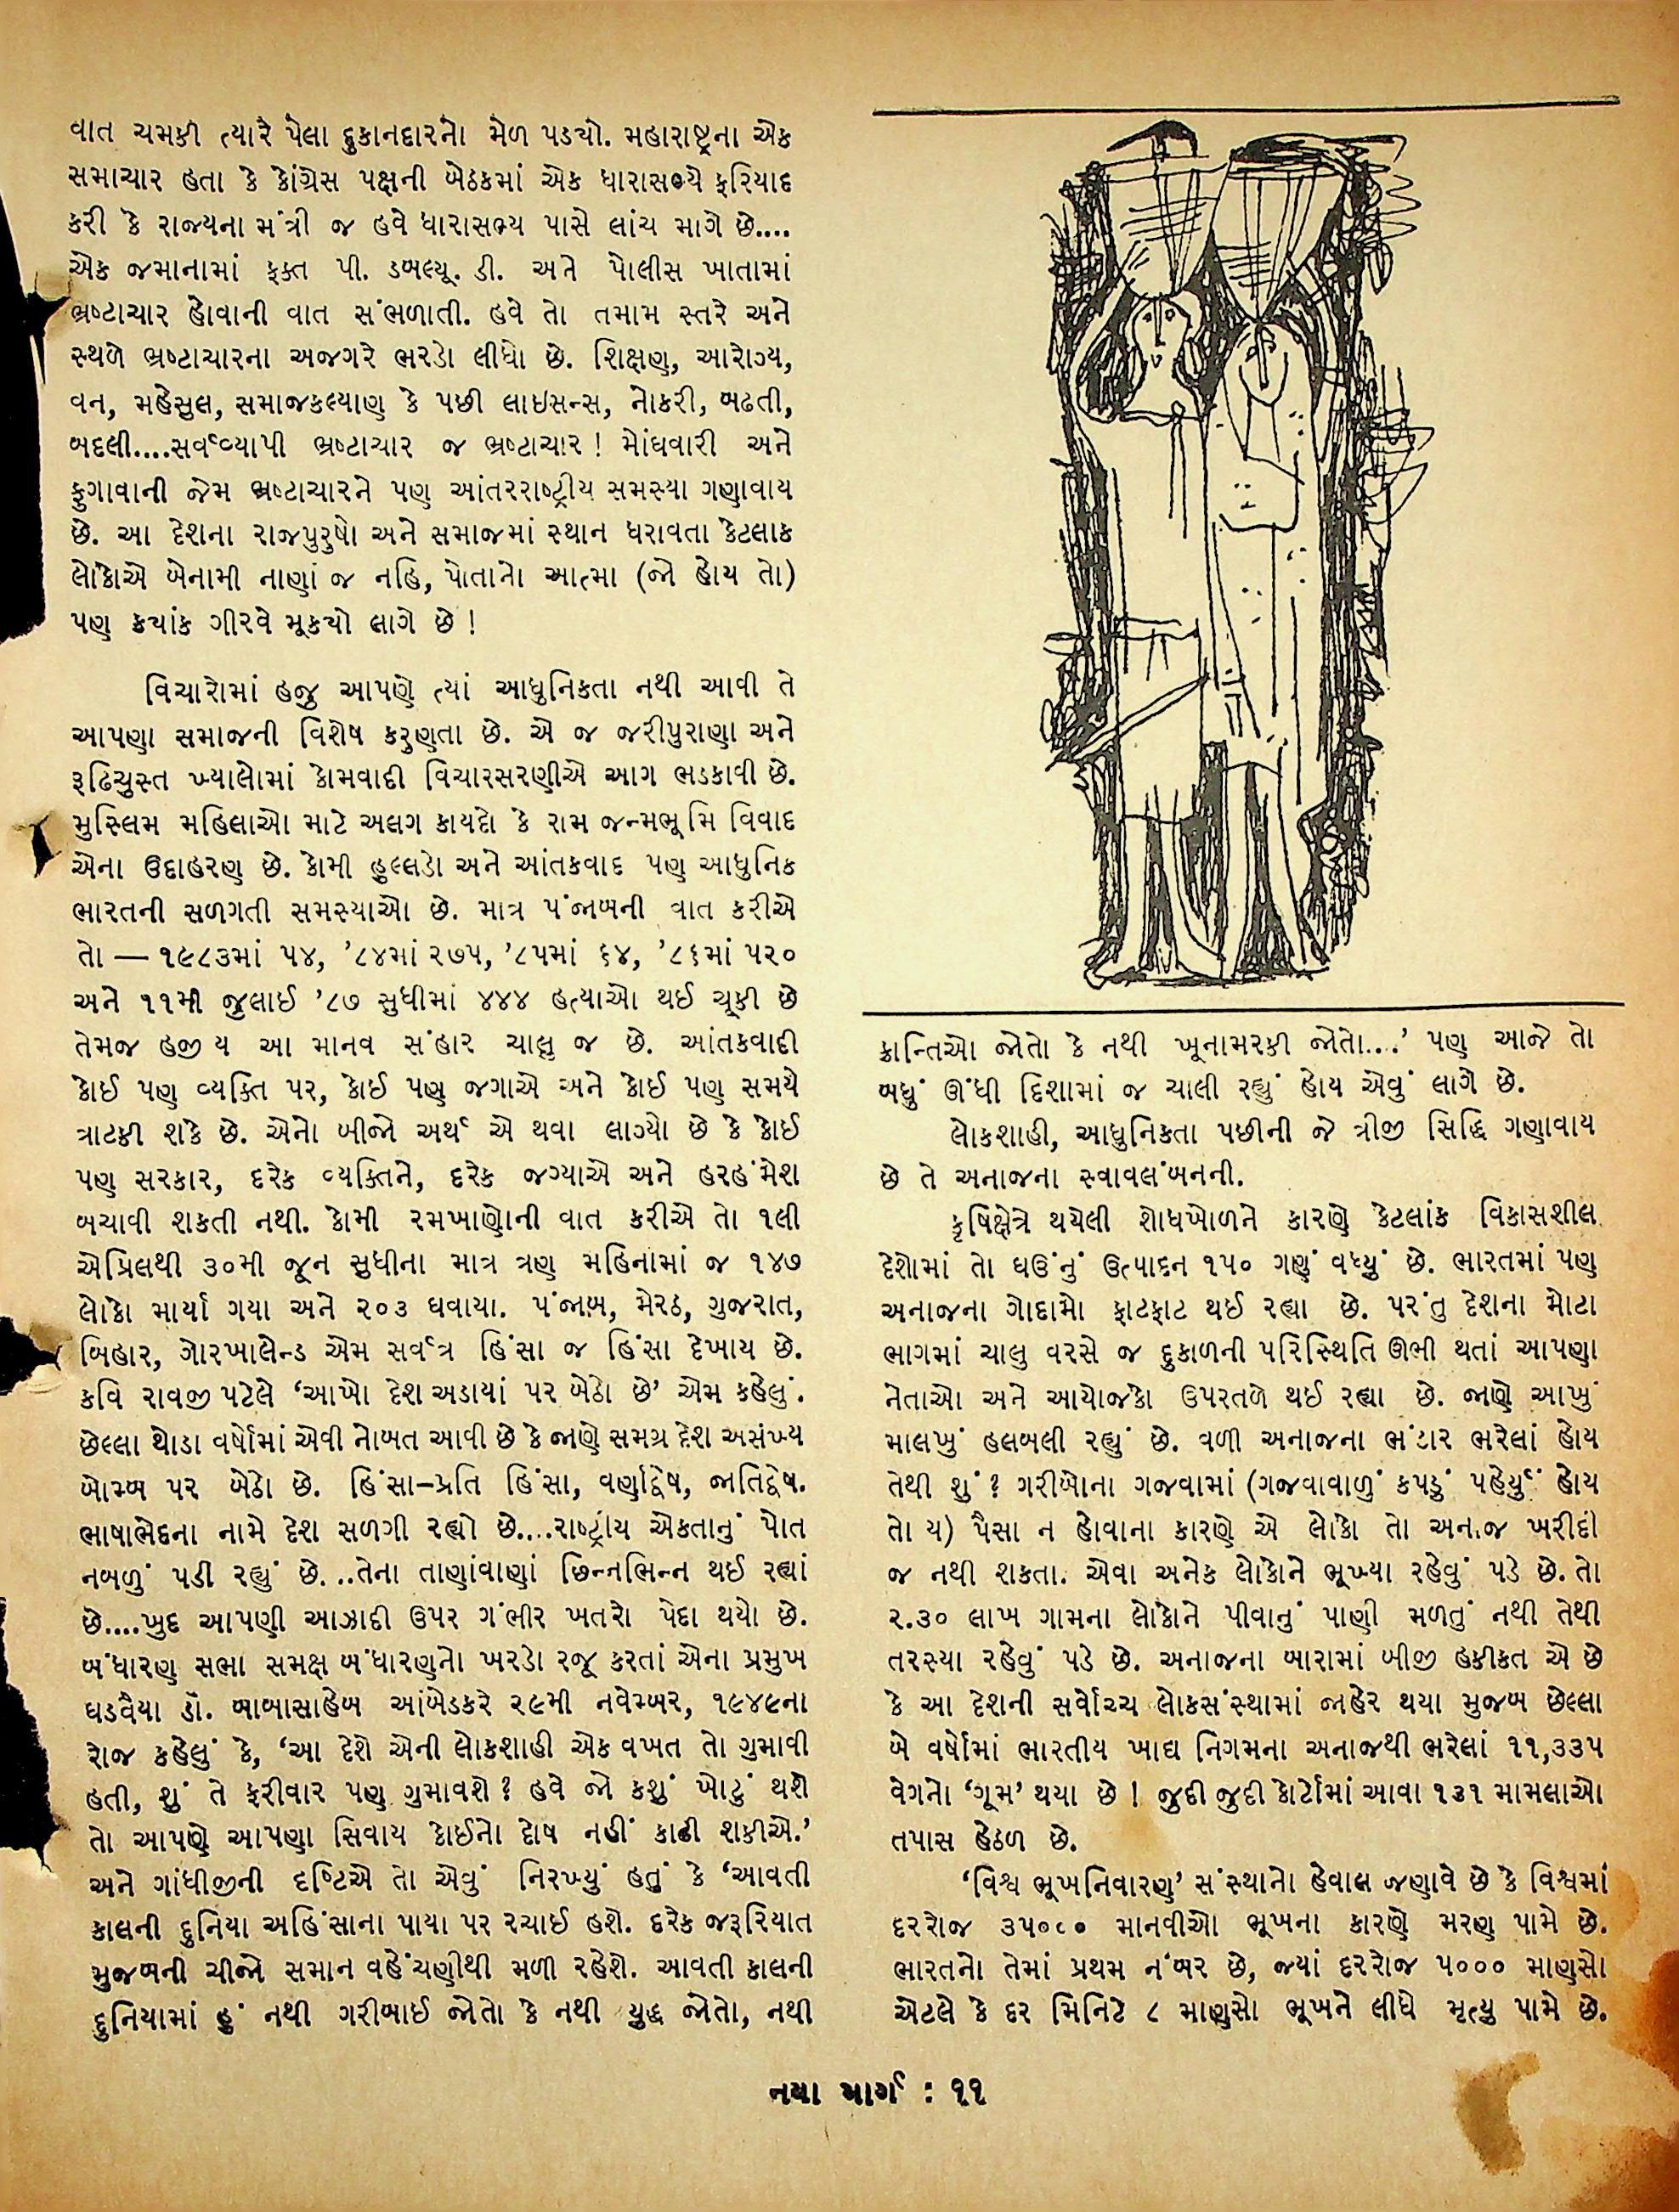 વાત ચમકી ત્યારે પેલા દુકાનદારનો મેળ પડયો. મહારાષ્ટ્રના એક
સમાચાર હતા કે કોંગ્રેસ પક્ષની બેઠકમાં એક ધારાસભ્યે ફરિયાદ
કરી કે રાજ્યના મંત્રી જ હવે ધારાસભ્ય પાસે લાંચ માગે છે....
એક જમાનામાં ફક્ત પી. ડબલ્યૂ. ડી. અને પોલીસ ખાતામાં
ભ્રષ્ટાચાર હોવાની વાત સંભળાતી. હવે તો તમામ સ્તરે અને
સ્થળે ભ્રષ્ટાચારના અજગરે ભરડો લીધો છે. શિક્ષણ, આરોગ્ય,
વન, મહેસુલ, સમાજકલ્યાણ કે પછી લાઇસન્સ, નોકરી, બઢતી,
બદલી....સર્વવ્યાપી ભ્રષ્ટાચાર જ ભ્રષ્ટાચાર! મોંઘવારી અને
ફુગાવાની જેમ ભ્રષ્ટાચારને પણ આંતરરાષ્ટ્રીય સમસ્યા ગણાવાય
છે. આ દેશના રાજપુરુષો અને સમાજમાં સ્થાન ધરાવતા કેટલાક
લોકોએ બેનામી નાણાં જ નહિ, પોતાનો આત્મા (જો હોય તો)
પણ ક્યાંક ગીરવે મૂકયો લાગે છે!
વિચારોમાં હજુ આપણે ત્યાં આધુનિકતા નથી આવી તે
આપણા સમાજની વિશેષ કરુણતા છે. એ જ જરીપુરાણા અને
રૂઢિચુસ્ત ખ્યાલોમાં કોમવાદી વિચારસરણીએ આગ ભડકાવી છે.
મુસ્લિમ મહિલાઓ માટે અલગ કાયદો કે રામ જન્મભૂમિ વિવાદ
એના ઉદાહરણ છે. કોમી હુલ્લડો અને આંતકવાદ પણ આધુનિક
ભારતની સળગતી સમસ્યાઓ છે. માત્ર પંજાબની વાત કરીએ
તો — ૧૯૮૩માં ૫૪, '૮૪માં ૨૭૫, '૮૫માં ૬૪, '૮૬માં ૫૨૦
અને ૧૧મી જુલાઈ '૮૭ સુધીમાં ૪૪૪ હત્યાઓ થઈ ચૂકી છે
તેમજ હજી ય આ માનવ સંહાર ચાલુ જ છે. આંતકવાદી
કોઈ પણ વ્યક્તિ પર, કોઈ પણ જગાએ અને કોઈ પણ સમયે
ત્રાટકી શકે છે. એનો બીજો અર્થ એ થવા લાગ્યો છે કે કોઈ
પણ સરકાર, દરેક વ્યક્તિને, દરેક જગ્યાએ અને હરહંમેશ
બચાવી શકતી નથી. કોમી રમખાણોની વાત કરીએ તો ૧લી
એપ્રિલથી ૩૦મી જૂન સુધીના માત્ર ત્રણ મહિનામાં જ ૧૪૭
લોકો માર્યા ગયા અને ૨૦૩ ઘવાયા. પંજાબ, મેરઠ, ગુજરાત,
બિહાર, ગોરખાલેન્ડ એમ સર્વત્ર હિંસા જ હિંસા દેખાય છે.
કવિ રાવજી પટેલે 'આખો દેશ અડાયાં પર બેઠો છે' એમ કહેલું.
છેલ્લા થોડા વર્ષોમાં એવી નોબત આવી છે કે જાણે સમગ્ર દેશ અસંખ્ય
બોમ્બ પર બેઠો છે. હિંસા-પ્રતિ હિંસા, વર્ણદ્વેષ, જાતિદ્વેષ.
ભાષાભેદના નામે દેશ સળગી રહ્યો છે....રાષ્ટ્રીય એકતાનું પોત
નબળું પડી રહ્યું છે...તેના તાણાંવાણાં છિન્નભિન્ન થઈ રહ્યાં
છે....ખુદ આપણી આઝાદી ઉપર ગંભીર ખતરો પેદા થયો છે.
બંધારણ સભા સમક્ષ બંધારણનો ખરડો રજૂ કરતાં એના પ્રમુખ
ઘડવૈયા ડૉ. બાબાસાહેબ આંબેડકરે ૨૯મી નવેમ્બર, ૧૯૪૯ના
રોજ કહેલું કે, 'આ દેશે એની લોકશાહી એક વખત તો ગુમાવી
હતી, શું તે ફરીવાર પણ ગુમાવશે? હવે જો કશું ખોટું થશે
તો આપણે આપણા સિવાય કોઈનો દોષ નહીં કાઢી શકીએ.'
અને ગાંધીજીની દૃષ્ટિએ તો એવું નિરખ્યું હતું કે 'આવતી
કાલની દુનિયા અહિંસાના પાયા પર રચાઈ હશે. દરેક જરૂરિયાત
મુજબની ચીજો સમાન વહેંચણીથી મળી રહેશે. આવતી કાલની
દુનિયામાં હું નથી ગરીબાઈ જોતો કે નથી યુદ્ધ જોતો, નથી
ક્રાન્તિઓ જોતો કે નથી ખૂનામરકી જોતો...' પણ આજે તો
બધું ઊંધી દિશામાં જ ચાલી રહ્યું હોય એવું લાગે છે.
લોકશાહી, આધુનિકતા પછીની જે ત્રીજી સિદ્ધિ ગણાવાય
છે તે અનાજના સ્વાવલંબનની.
કૃષિક્ષેત્રે થયેલી શોધખોળને કારણે કેટલાંક વિકાસશીલ
દેશોમાં તો ઘઉંનું ઉત્પાદન ૧૫૦ ગણું વધ્યું છે. ભારતમાં પણ
અનાજના ગોદામો ફાટફાટ થઈ રહ્યા છે. પરંતુ દેશના મોટા
ભાગમાં ચાલુ વરસે જ દુકાળની પરિસ્થિતિ ઊભી થતાં આપણા
નેતાઓ અને આયોજકો ઉપરતળે થઈ રહ્યા છે. જાણે આખું
માલખું હલબલી રહ્યું છે. વળી અનાજના ભંડાર ભરેલાં હોય
તેથી શું? ગરીબોના ગજવામાં (ગજવાવાળું કપડું પહેર્યું હોય
તો ય) પૈસા ન હોવાના કારણે એ લોકો તો અનાજ ખરીદી
જ નથી શકતા. એવા અનેક લોકોને ભૂખ્યા રહેવું પડે છે. તો
૨.૩૦ લાખ ગામના લોકોને પીવાનું પાણી મળતું નથી તેથી
તરસ્યા રહેવું પડે છે. અનાજના બારામાં બીજી હકીકત એ છે
કે આ દેશની સર્વોચ્ચ લોકસંસ્થામાં જાહેર થયા મુજબ છેલ્લા
બે વર્ષોમાં ભારતીય ખાદ્ય નિગમના અનાજથી ભરેલાં ૧૧,૩૩૫
વેગનો 'ગૂમ' થયા છે! જુદી જુદી કોર્ટોમાં આવા ૧૩૧ મામલાઓ
તપાસ હેઠળ છે.
'વિશ્વ ભૂખનિવારણ' સંસ્થાનો હેવાલ જણાવે છે કે વિશ્વમાં
દરરોજ ૩૫૦૮૦ માનવીઓ ભૂખના કારણે મરણ પામે છે.
ભારતનો તેમાં પ્રથમ નંબર છે, જ્યાં દરરોજ ૫૦૦૦ માણસો
એટલે કે દર મિનિટે ૮ માણસો ભૂખને લીધે મૃત્યુ પામે છે.
નયા માર્ગ : ૧૧